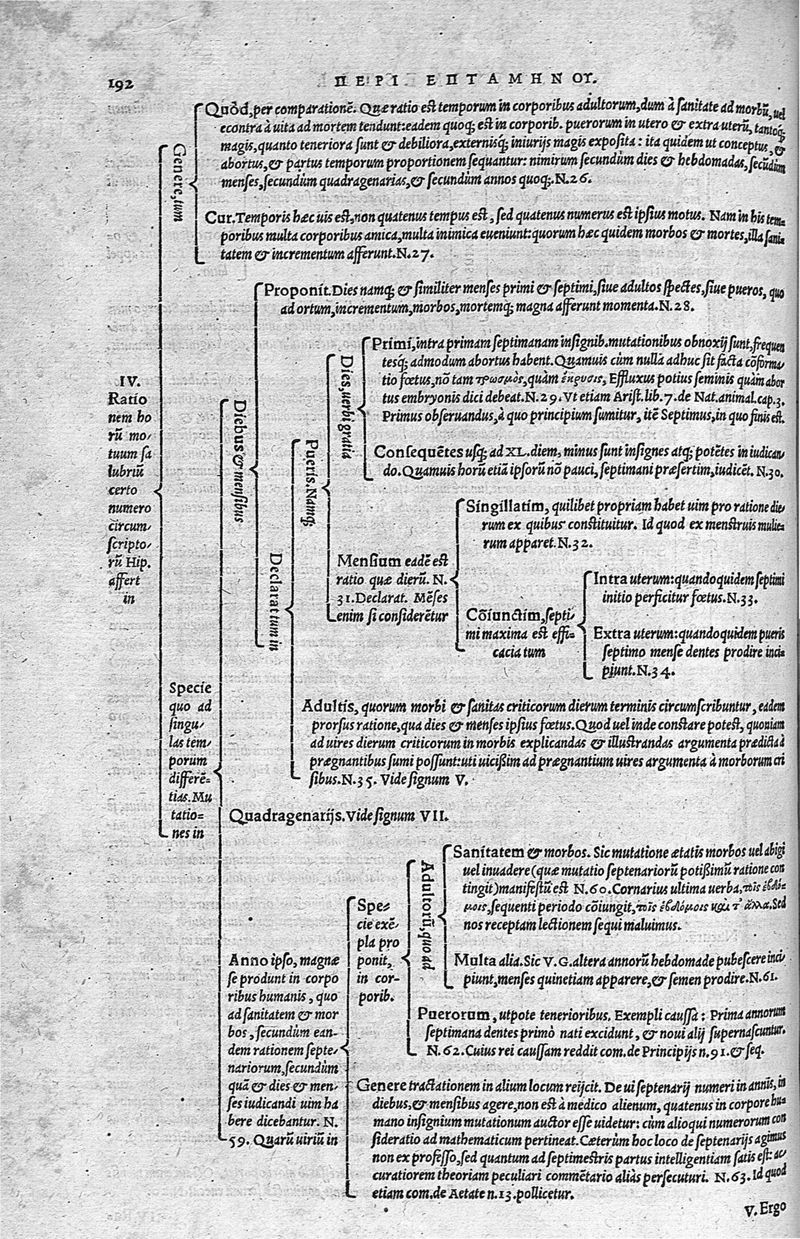 192
ΠΕΡΙ ΕΠΤΑΜΗΝΟΥ.
IV.
Ratio
nem ho
rũ mo⸗
tuum sa
lubriũ
certo
numero
circum⸗
scripto⸗
rũ Hip.
affert
in
Genere, tum
Quòd, per comparationẽ. Quæ ratio est temporum in corporibus adultorum, dum à sanitate ad morbũ, uel
econtra à uita ad mortem tendunt: eadem quoq; est in corporib. puerorum in utero & extra uterũ, tantoq;
magis, quanto teneriora sunt & debiliora, externisq; iniurijs magis exposita: ita quidem ut conceptus, &
abortus, & partus temporum proportionem sequantur: nimirum secundùm dies & hebdomadas, secũdùm
menses, secundùm quadragenarias, & secundùm annos quoq;. N. 26.
Cur. Temporis hæc uis est, non quatenus tempus est, sed quatenus numerus est ipsius motus. Nam in his tem⸗
poribus multa corporibus amica, multa inimica eueniunt: quorum hæc quidem morbos & mortes, illa sani⸗
tatem & incrementum afferunt. N. 27.
Specie
quo ad
singu⸗
las tem⸗
porum
differẽ⸗
tias. Mu
tatio⸗
nes in
Diebus & mensibus
Proponit. Dies namq; & similiter menses primi & septimi, siue adultos spectes, siue pueros, quo
ad ortum, incrementum, morbos, mortemq; magna afferunt momenta. N. 28.
Declarat tum in
Pueris. Namq;
Dies, uerbi gratia
Primi, intra primam septimanam insignib. mutationibus obnoxij sunt, frequen
tesq; admodum abortus habent. Quamuis cùm nulla adhuc sit facta cõforma⸗
tio fœtus, nõ tam τρωσμὸς, quàm ἔκρυσις, Effluxus potius seminis quàm abor
tus embryonis dici debeat. N. 29. Vt etiam Arist. lib. 7. de Nat. animal. cap. 3.
Primus obseruandus, à quo principium sumitur, itẽ Septimus, in quo finis est.
Consequẽtes usq; ad XL. diem, minus sunt insignes atq; potẽtes in iudican⸗
do. Quamuis horũ etiã ipsorũ nõ pauci, septimani præsertim, iudicẽt. N. 30.
Mensium eadẽ est
ratio quæ dierũ. N.
31. Declarat. Mẽses
enim si considerẽtur
Singillatim, quilibet propriam habet uim pro ratione die⸗
rum ex quibus constituitur. Id quod ex menstruis mulie⸗
rum apparet. N. 32.
Cõiunctim, septi⸗
mi maxima est effi⸗
cacia tum
Intra uterum: quandoquidem septimi
initio perficitur fœtus. N. 33.
Extra uterum: quandoquidem pueris
septimo mense dentes prodire inci⸗
piunt. N. 34.
Adultis, quorum morbi & sanitas criticorum dierum terminis circumscribuntur, eadem
prorsus ratione, qua dies & menses ipsius fœtus. Quod uel inde constare potest, quoniam
ad uires dierum criticorum in morbis explicandas & illustrandas argumenta prædicta à
prægnantibus sumi possunt: uti uicissim ad prægnantium uires argumenta à morborum cri
sibus. N. 35. Vide signum V.
Quadragenarijs. Vide signum VII.
Anno ipso, magnæ
se produnt in corpo
ribus humanis, quo
ad sanitatem & mor
bos, secundùm ean⸗
dem rationem septe⸗
nariorum, secundùm
quã & dies & men⸗
ses iudicandi uim ha
bere dicebantur. N.
59. Quarũ uiriũ in
Spe⸗
cie exẽ⸗
pla pro
ponit,
in cor⸗
porib.
Adultorũ, quo ad
Sanitatem & morbos. Sic mutatione ætatis morbos uel abigi
uel inuadere (quæ mutatio septenariorũ potissimũ ratione con
tingit) manifestũ est N. 60. Cornarius ultima uerba, τοῖς ἑβδό⸗
μοις, sequenti periodo cõiungit, τοῖς ἑβδόμοις καὶ τ' ἄλλα. Sed
nos receptam lectionem sequi maluimus.
Multa alia. Sic V. G. altera annorũ hebdomade pubescere inci
piunt, menses quinetiam apparere, & semen prodire. N. 61.
Puerorum, utpote tenerioribus. Exempli caussa: Prima annorum
septimana dentes primò nati excidunt, & noui alij supernascuntur.
N. 62. Cuius rei caussam reddit com. de Principijs n. 91. & seq.
Genere tractationem in alium locum reijcit. De ui septenarij numeri in annis, in
diebus, & mensibus agere, non est à medico alienum, quatenus in corpore hu⸗
mano insignium mutationum auctor esse uidetur: cùm alioqui numerorum con
sideratio ad mathematicum pertineat. Cæterùm hoc loco de septenarijs agimus
non ex professo, sed quantum ad septimestris partus intelligentiam satis est: ac⸗
curatiorem theoriam peculiari commẽtario aliàs persecuturi. N. 63. Id quod
etiam com. de Aetate n. 13. pollicetur.
V. Ergo